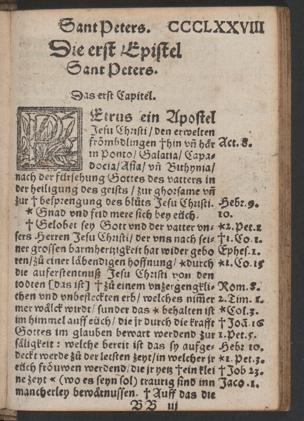 Sant Peters. CCCLXXVIII
Die erst Epistel
Sant Peters.
Das erst Capitel.
PEtrus ein Apostel
Jesu Christi / den erwelten
frömbdlingen † hin vn̄ här Act. 8.
in Ponto / Galatia / Capa-
docia / Asia / vn̄ Bithynia /
nach der fürsehung Gottes des vatters in
der heiligung des geists / zur ghorsame vn̄
zur † besprengung des blůts Jesu Christi. Hebr. 9.
* Gnad vnd frid mere sich bey eüch. 10.
† Gelobet sey Gott vnd der vatter vn- *2. Pet. 1
sers Herren Jesu Christi / der vns nach sei- †1. Co. 1.
ner grossen barmhertzigkeit hat wider gebo Ephes. 1.
ren / zů einer läbendigen hoffnung / * durch *1. Co. 15
die auferstentnuß Jesu Christi von den
todten [das ist] † zů einem vnzergengkli- Rom. 8.
chen vnd vnbefleckten erb / welches nim̄er 2. Tim. 1.
mer wälck wirt / sunder das * behalten ist *Col. 3.
im himmel auff eüch / die jr durch die krafft †Joā. 16
Gottes im glauben bewart werdend zur 1. Pet. 5.
säligkeit : welche bereit ist das sy aufge- Hebr 10.
deckt werde zů der letsten zeyt / in welcher jr *1. Pet. 5.
eüch fröuwen werdend / die jr yetz † ein klei †Job 23.
ne zeyt * (wo es seyn sol) traurig sind inn Jaco. 1.
mancherley bewärnussen. † Auff das die
BB iij